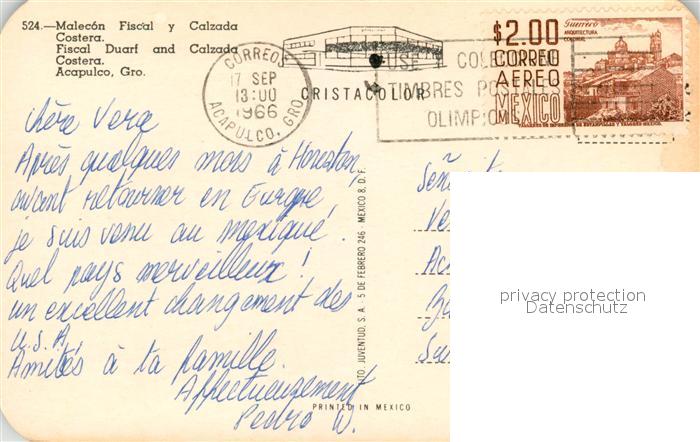 524.—Malecón Fiscal y Calzada
Costera.
Fiscal Duarf and Calzada
Costera.
Acapulco, Gro.
CORREOS
17 SEP
13:00
1966
ACAPULCO, GRO.
CRISTACOLOR
USE
TIMBRES
$2.00
CORREO
AEREO
MEXICO
Guerrero
ARQUITECTURA
COLONIAL
Chère Vera
Après quelques mois à Houston,
avant retourner en Europe,
je suis venu au mexique.
Quel pays merveilleux!
un excellent changement des
U.S.A.
Amitiés à ta famille.
Affectueusement
Pedro W.
JUVENTUD, S. A. 5 DE FEBRERO 246 MEXICO 8, D. F.
PRINTED IN MEXICO
Señ
privacy protection
Datenschutz